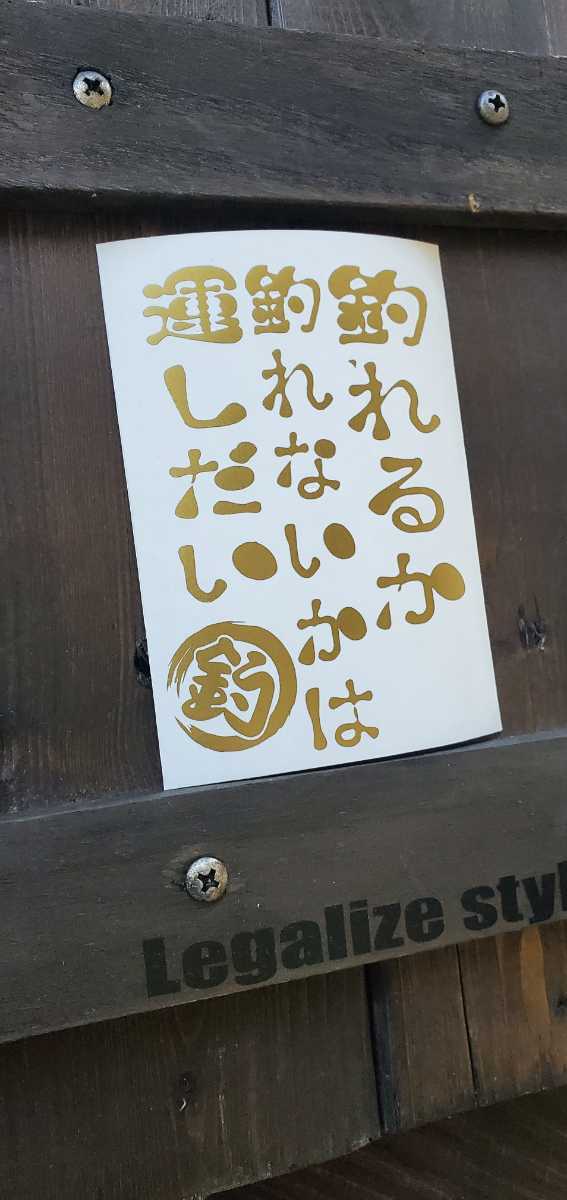 釣れるか
釣れないかは
運しだい
釣
Legalize styl